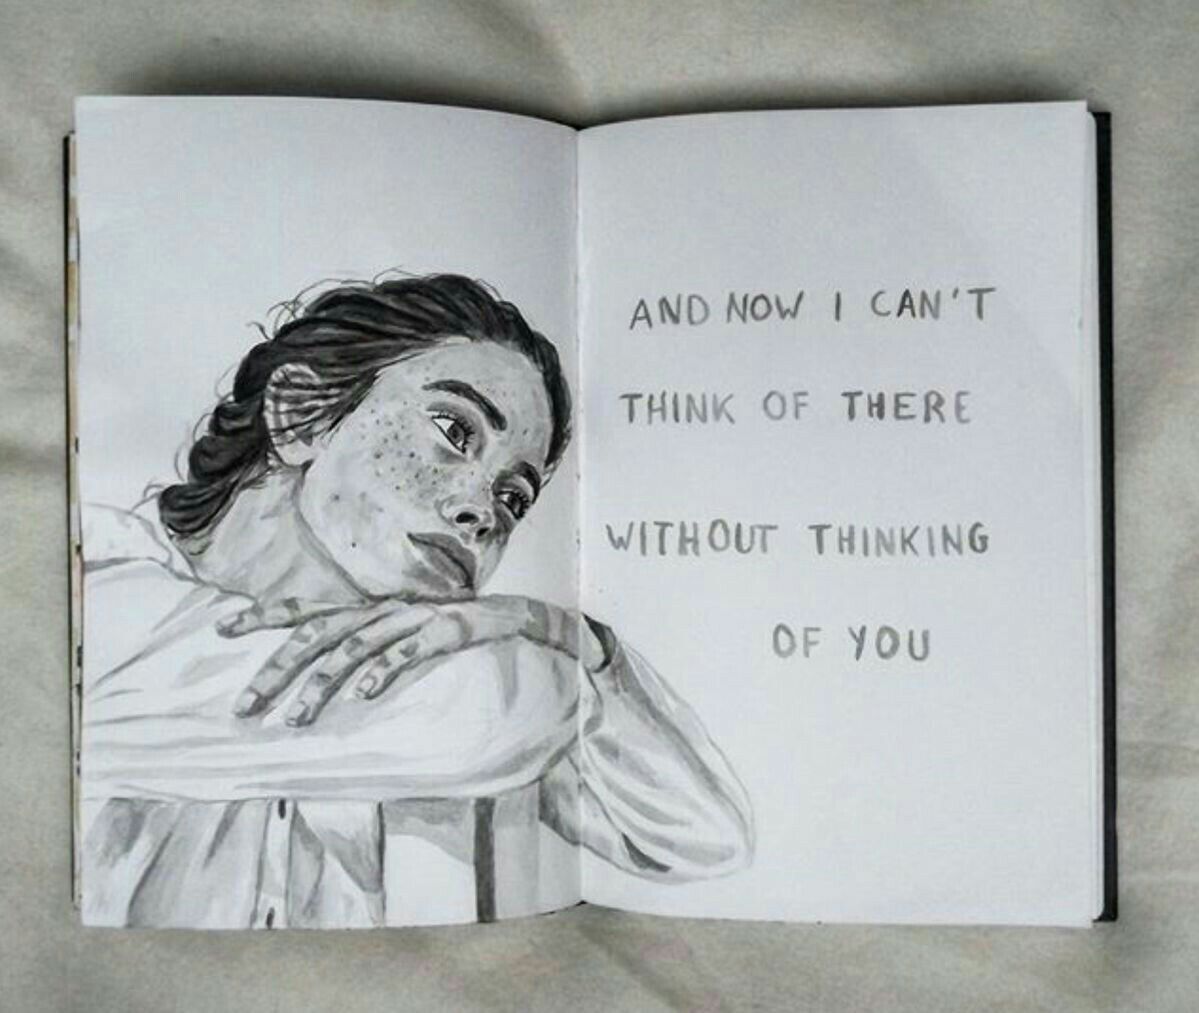 AND NOW I CAN'T
THINK OF THERE
WITHOUT THINKING
OF YOU